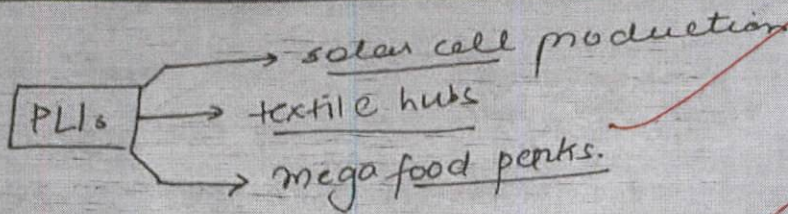 solar cell production
PLIs
textile hubs
mega food parks.